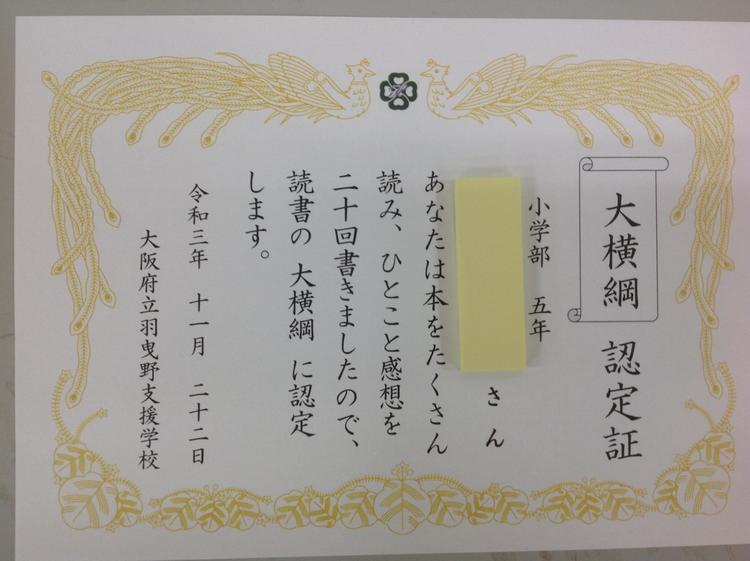 大横綱 認定証
小学部 五年
さん
あなたは本をたくさん
読み、ひとこと感想を
二十回書きましたので、
読書の 大横綱 に認定
します。
令和三年 十一月 二十二日
大阪府立羽曳野支援学校